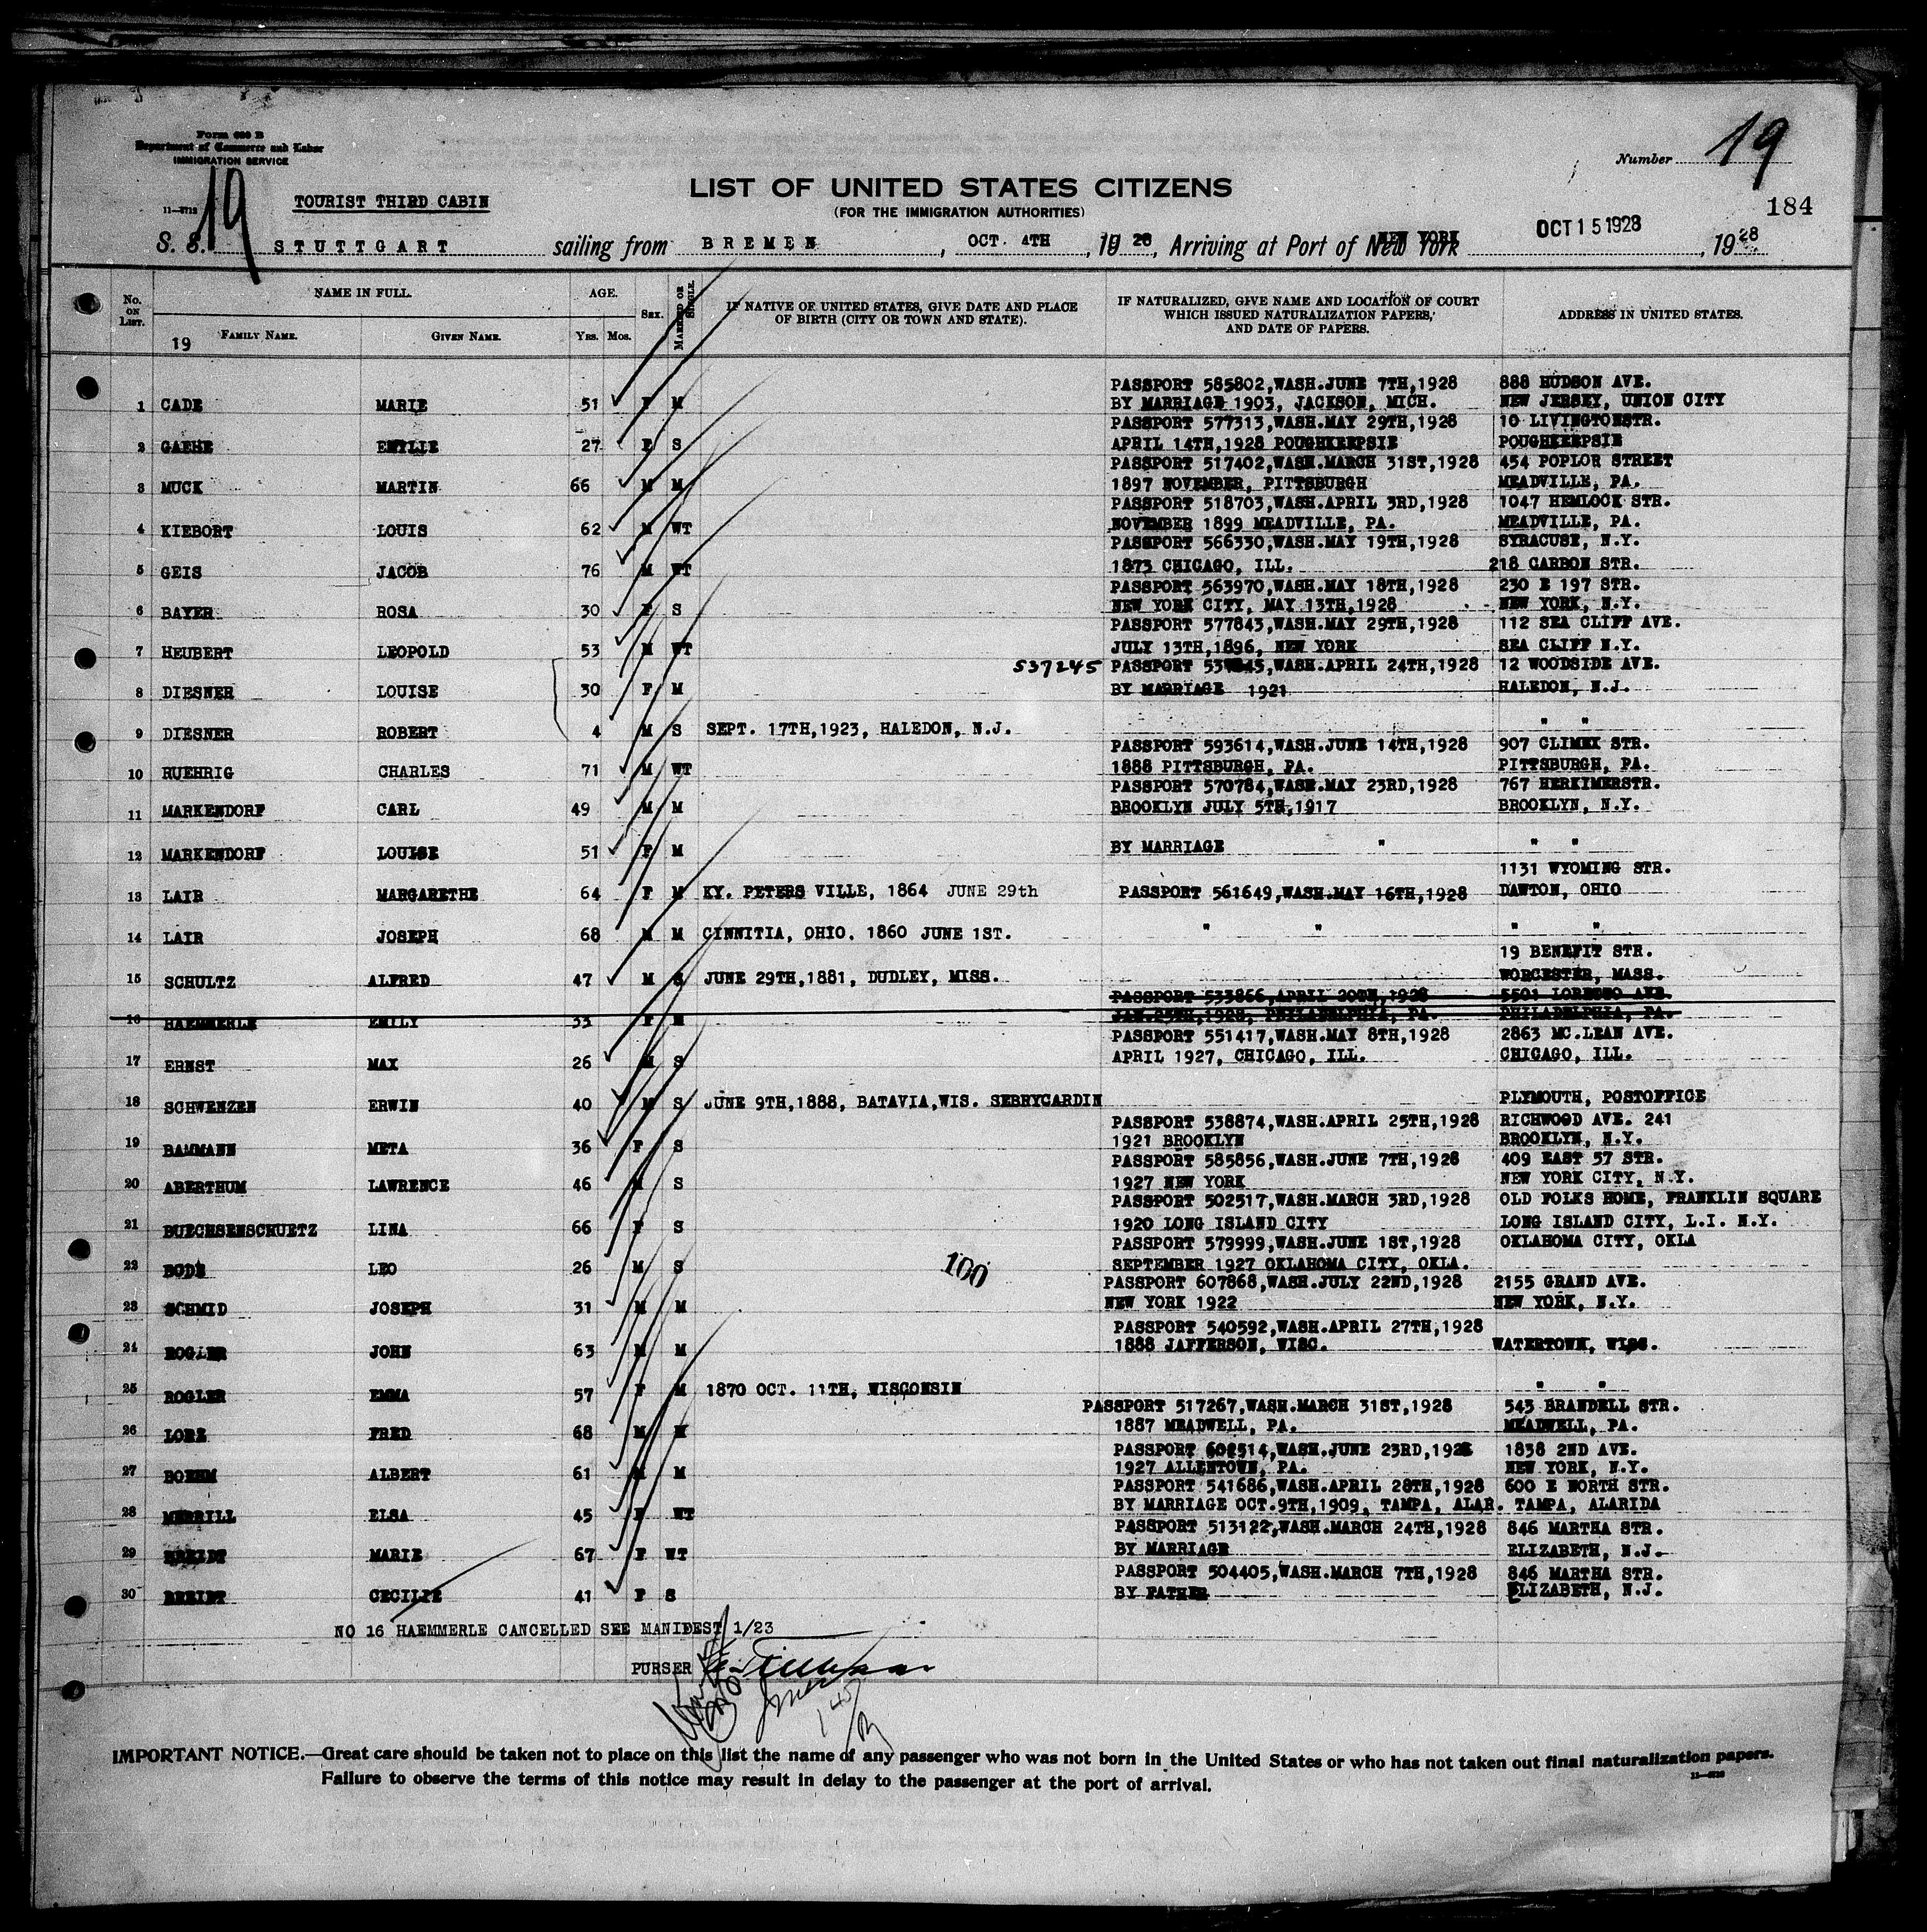 Form 630 B
Department of Commerce and Labor
IMMIGRATION SERVICE
Number 19
19
LIST OF UNITED STATES CITIZENS
TOURIST THIRD CABIN
(FOR THE IMMIGRATION AUTHORITIES)
184
S. S. STUTTGART sailing from BREMEN, OCT. 4TH, 19 28, Arriving at Port of New York NEW YORK OCT 15 1928, 1928.
No. ON LIST.
NAME IN FULL.
FAMILY NAME.
GIVEN NAME.
AGE.
YRS. MOS.
SEX.
MARRIED OR SINGLE.
IF NATIVE OF UNITED STATES, GIVE DATE AND PLACE OF BIRTH (CITY OR TOWN AND STATE).
IF NATURALIZED, GIVE NAME AND LOCATION OF COURT WHICH ISSUED NATURALIZATION PAPERS, AND DATE OF PAPERS.
ADDRESS IN UNITED STATES.
19
PASSPORT 585802,WASH.JUNE 7TH,1928 888 HUDSON AVE.
1 CADE MARIE 51 F M BY MARRIAGE 1903, JACKSON, MICH. NEW JERSEY, UNION CITY
PASSPORT 577313,WASH.MAY 29TH,1928 10 LIVINGTONSTR.
2 GAEHE EMYLIE 27 F S APRIL 14TH,1928 POUGHKEEPSIE POUGHKEEPSIE
PASSPORT 517402,WASH.MARCH 31ST,1928 454 POPLOR STREET
3 MUCK MARTIN 66 M M 1897 NOVEMBER, PITTSBURGH MEADVILLE, PA.
PASSPORT 518703,WASH.APRIL 3RD,1928 1047 HEMLOCK STR.
4 KIEBORT LOUIS 62 M WT NOVEMBER 1899 MEADVILLE, PA. MEADVILLE, PA.
PASSPORT 566330,WASH.MAY 19TH,1928 SYRACUSE, N.Y.
5 GEIS JACOB 76 M WT 1873 CHICAGO, ILL. 218 CARBON STR.
PASSPORT 563970,WASH.MAY 18TH,1928 230 E 197 STR.
6 BAYER ROSA 30 F S NEW YORK CITY, MAY 13TH,1928 NEW YORK, N.Y.
PASSPORT 577843,WASH.MAY 29TH,1928 112 SEA CLIFF AVE.
7 HEUBERT LEOPOLD 53 M WT JULY 13TH,1896, NEW YORK SEA CLIFF N.Y.
537245 PASSPORT WASH.APRIL 24TH,1928 12 WOODSIDE AVE.
8 DIESNER LOUISE 30 F M BY MARRIAGE 1921 HALEDON, N.J.
9 DIESNER ROBERT 4 M S SEPT. 17TH,1923, HALEDON, N.J. " "
PASSPORT 593614,WASH.JUNE 14TH,1928 907 CLIMEX STR.
10 RUEHRIG CHARLES 71 M WT 1888 PITTSBURGH, PA. PITTSBURGH, PA.
PASSPORT 570784,WASH.MAY 23RD,1928 767 HERKIMERSTR.
11 MARKENDORF CARL 49 M M BROOKLYN JULY 5TH,1917 BROOKLYN, N.Y.
12 MARKENDORF LOUISE 51 F M BY MARRIAGE " " "
1131 WYOMING STR.
13 LAIR MARGARETHE 64 F M KY. PETERS VILLE, 1864 JUNE 29th PASSPORT 561649,WASH.MAY 16TH,1928 DAWTON, OHIO
14 LAIR JOSEPH 68 M M CINNITIA, OHIO. 1860 JUNE 1ST. " " " "
19 BENEFIT STR.
15 SCHULTZ ALFRED 47 M S JUNE 29TH,1881, DUDLEY, MISS. WORCESTER, MASS.
PASSPORT 533866,APRIL 20TH,1928 5501 LORETTO AVE.
16 HAEMMERLE EMILY 33 F M JAN.25TH,1928, PHILADELPHIA, PA. PHILADELPHIA, PA.
PASSPORT 551417,WASH.MAY 8TH,1928 2863 MC.LEAN AVE.
17 ERNST MAX 26 M S APRIL 1927, CHICAGO, ILL. CHICAGO, ILL.
18 SCHWENZEN ERWIN 40 M S JUNE 9TH,1888, BATAVIA,WIS. SEBRYCARDIN PLYMOUTH, POSTOFFICE
PASSPORT 538874,WASH.APRIL 25TH,1928 RICHWOOD AVE. 241
19 BAMMANN META 36 F S 1921 BROOKLYN BROOKLYN, N.Y.
PASSPORT 585856,WASH.JUNE 7TH,1928 409 EAST 57 STR.
20 ABERTHUM LAWRENCE 46 M S 1927 NEW YORK NEW YORK CITY, N.Y.
PASSPORT 502517,WASH.MARCH 3RD,1928 OLD FOLKS HOME, FRANKLIN SQUARE
21 BUECHSENSCHUETZ LINA 66 F S 1920 LONG ISLAND CITY LONG ISLAND CITY, L.I. N.Y.
PASSPORT 579999,WASH.JUNE 1ST,1928 OKLAHOMA CITY, OKLA
22 BODE LEO 26 M S 100 SEPTEMBER 1927 OKLAHOMA CITY, OKLA.
PASSPORT 607868,WASH.JULY 22ND,1928 2155 GRAND AVE.
23 SCHMID JOSEPH 31 M M NEW YORK 1922 NEW YORK, N.Y.
PASSPORT 540592,WASH.APRIL 27TH,1928
24 ROGLER JOHN 63 M M 1888 JAFFERSON, WISC. WATERTOWN, WISC.
25 ROGLER EMMA 57 F M 1870 OCT. 11TH, WISCONSIN " "
PASSPORT 517267,WASH.MARCH 31ST,1928 543 BRANDELL STR.
26 LORZ FRED 68 M M 1887 MEADWELL, PA. MEADWELL, PA.
PASSPORT 602514,WASH.JUNE 23RD,1928 1838 2ND AVE.
27 BOEHM ALBERT 61 M M 1927 ALLENTOWN, PA. NEW YORK, N.Y.
PASSPORT 541686,WASH.APRIL 28TH,1928 600 E NORTH STR.
28 MERRILL ELSA 45 F WT BY MARRIAGE OCT.9TH,1909, TAMPA, ALAR. TAMPA, ALARIDA
PASSPORT 513122,WASH.MARCH 24TH,1928 846 MARTHA STR.
29 BREIDT MARIE 67 F WT BY MARRIAGE ELIZABETH, N.J.
PASSPORT 504405,WASH.MARCH 7TH,1928 846 MARTHA STR.
30 BREIDT CECILIE 41 F S BY FATHER ELIZABETH, N.J.
NO 16 HAEMMERLE CANCELLED SEE MANIDEST 1/23
PURSER
IMPORTANT NOTICE.—Great care should be taken not to place on this list the name of any passenger who was not born in the United States or who has not taken out final naturalization papers.
Failure to observe the terms of this notice may result in delay to the passenger at the port of arrival.